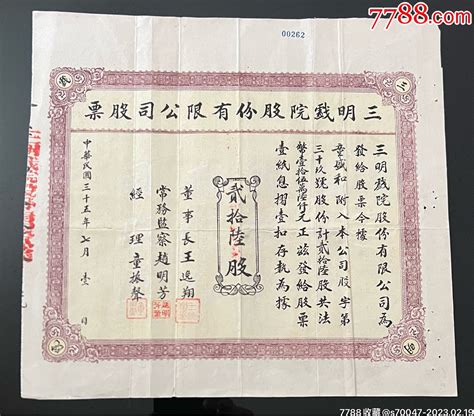 7788.com
00262
三明戲院股份有限公司股票
三明戲院股份有限公司為
發給股票今據
章城和 附入本公司股字第
三十玖號股份計貳拾陸股共法
幣壹拾伍萬陸仟元正茲發給股票
壹紙息摺壹扣存執為據
貳拾陸股
董事長 王逸翔
常務監察 趙明芳
經理 童振聲
中華民國三十五年七月壹日
7788收藏@s70047-2023.02.19